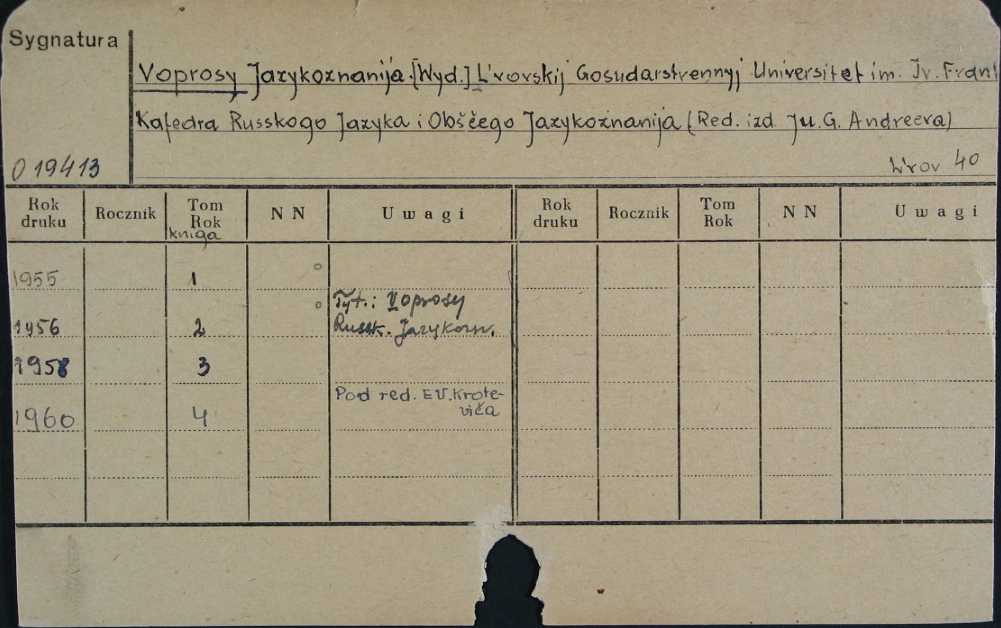 Sygnatura
Voprosy Jazykoznanija. [Wyd.] L'vovskij Gosudarstvennyj Universitet im. Iv. Frank
Kafedra Russkogo Jazyka i Obščego Jazykoznanija (Red. izd. Ju. G. Andreeva)
O 19413
L'vov 40
Rok druku Rocznik Tom Rok N N Uwagi Rok druku Rocznik Tom Rok N N Uwagi
kniga
1955 1
Tyt.: Voprosy
1956 2 Russk. Jazykozn.
1958 3
Pod red. E.V. Krote-
viča
1960 4